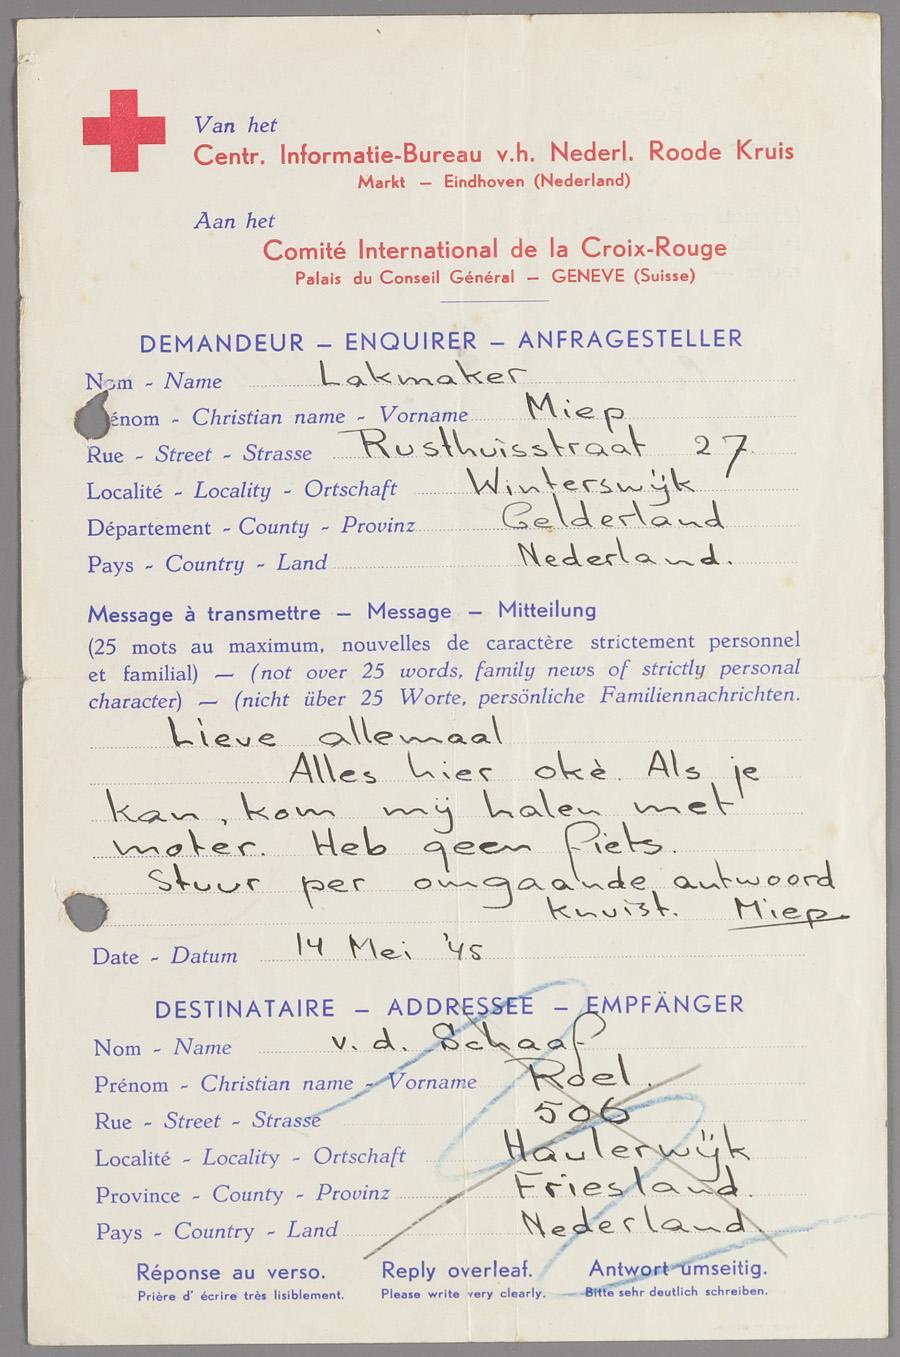 Van het
Centr. Informatie-Bureau v.h. Nederl. Roode Kruis
Markt — Eindhoven (Nederland)
Aan het
Comité International de la Croix-Rouge
Palais du Conseil Général — GENEVE (Suisse)
DEMANDEUR — ENQUIRER — ANFRAGESTELLER
Nom - Name Lakmaker
énom - Christian name - Vorname Miep
Rue - Street - Strasse Rusthuisstraat 27
Localité - Locality - Ortschaft Winterswijk
Département - County - Provinz Gelderland
Pays - Country - Land Nederland.
Message à transmettre — Message — Mitteilung
(25 mots au maximum, nouvelles de caractère strictement personnel
et familial) — (not over 25 words, family news of strictly personal
character) — (nicht über 25 Worte, persönliche Familiennachrichten.
Lieve allemaal
Alles hier okè. Als je
kan, kom mij halen met
moter. Heb geen fiets.
Stuur per omgaande antwoord
knuist. Miep.
Date - Datum 14 Mei '45
DESTINATAIRE — ADDRESSEE — EMPFÄNGER
Nom - Name v. d. Schaaf
Prénom - Christian name - Vorname Roel.
Rue - Street - Strasse 506
Localité - Locality - Ortschaft Haulerwijk
Province - County - Provinz Friesland.
Pays - Country - Land Nederland.
Réponse au verso. Reply overleaf. Antwort umseitig.
Prière d' écrire très lisiblement. Please write very clearly. Bitte sehr deutlich schreiben.